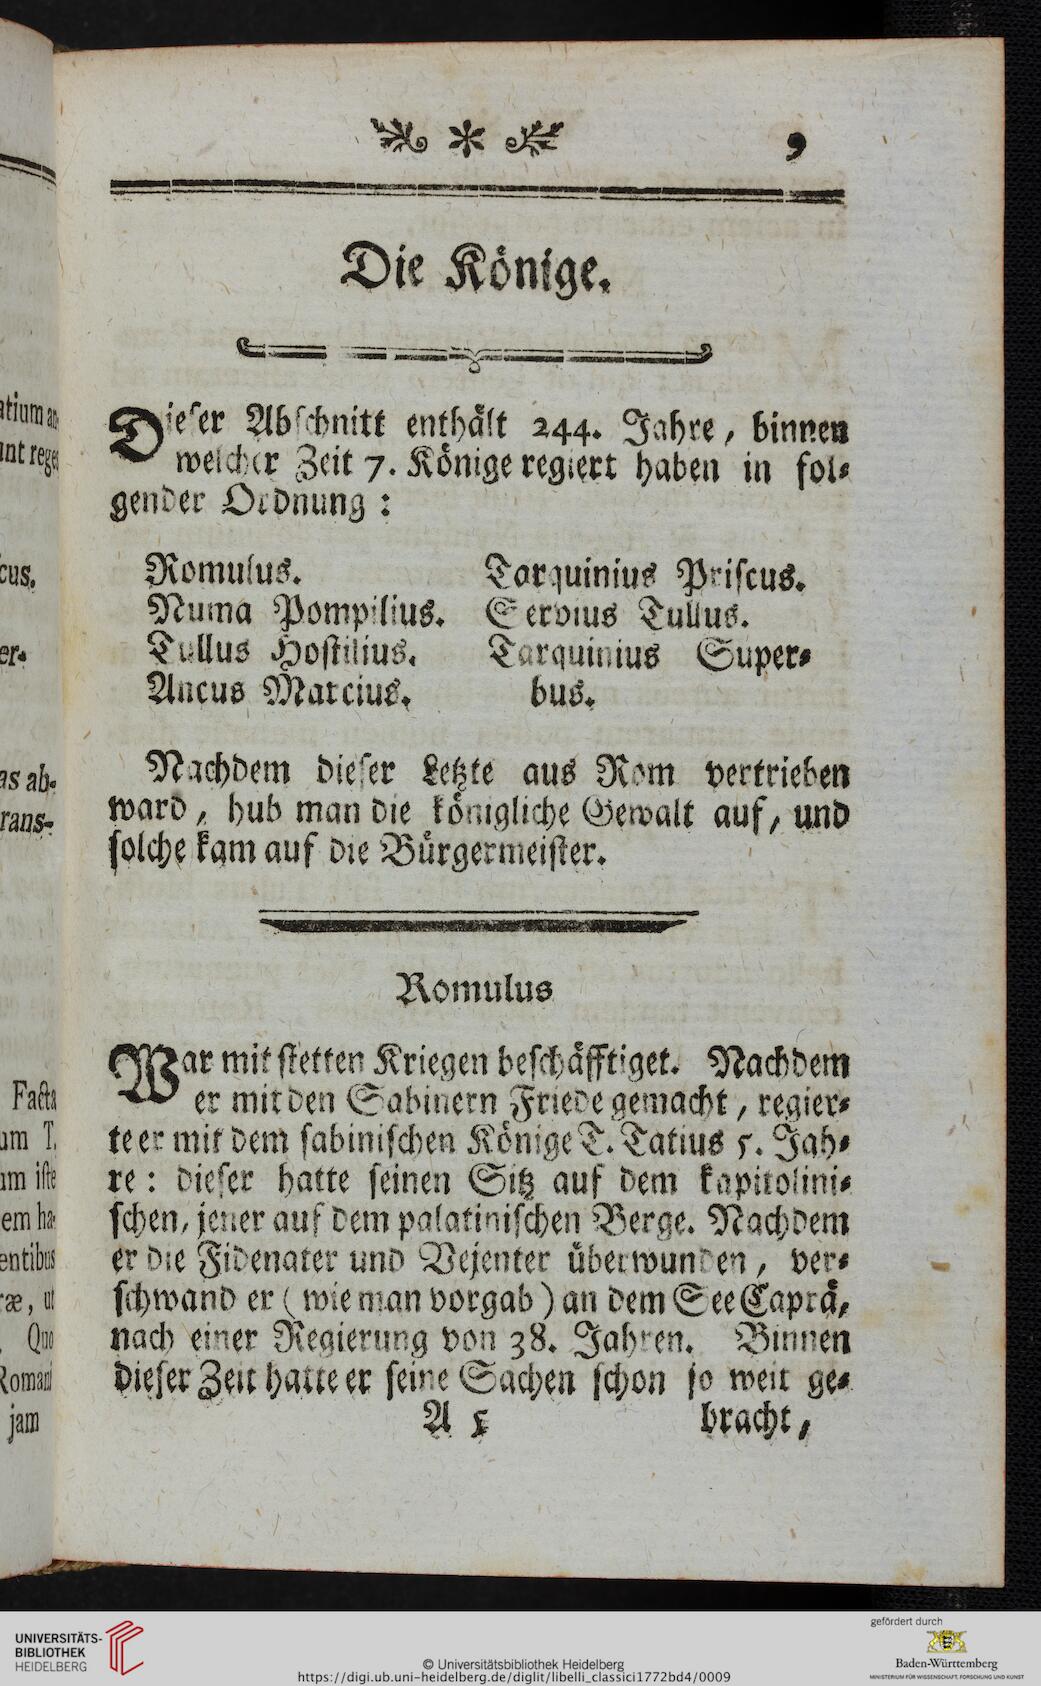 9
Die Könige.
Dieser Abschnitt enthält 244. Jahre, binnen
welcher Zeit 7. Könige regiert haben in fol-
gender Ordnung:
Romulus.
Numa Pompilius.
Tullus Hostilius.
Ancus Marcius.
Tarquinius Priscus.
Servius Tullus.
Tarquinius Super-
bus.
Nachdem dieser Letzte aus Rom vertrieben
ward, hub man die königliche Gewalt auf, und
solche kam auf die Bürgermeister.
Romulus
War mit stetten Kriegen beschäfftiget. Nachdem
er mit den Sabinern Friede gemacht, regier-
te er mit dem sabinischen Könige T. Tatius 5. Jah-
re: dieser hatte seinen Sitz auf dem kapitolini-
schen, jener auf dem palatinischen Berge. Nachdem
er die Fidenater und Vejenter überwunden, ver-
schwand er (wie man vorgab) an dem See Caprä,
nach einer Regierung von 38. Jahren. Binnen
dieser Zeit hatte er seine Sachen schon so weit ge-
A 5 bracht,
cus.
er-
as ab-
rans-
Facta
um T.
um iste
em ha-
entibus
ræ, ut
Quo
Romani
jam
UNIVERSITÄTS-
BIBLIOTHEK
HEIDELBERG
© Universitätsbibliothek Heidelberg
https://digi.ub.uni-heidelberg.de/diglit/libelli_classici1772bd4/0009
gefördert durch
Baden-Württemberg
MINISTERIUM FÜR WISSENSCHAFT, FORSCHUNG UND KUNST